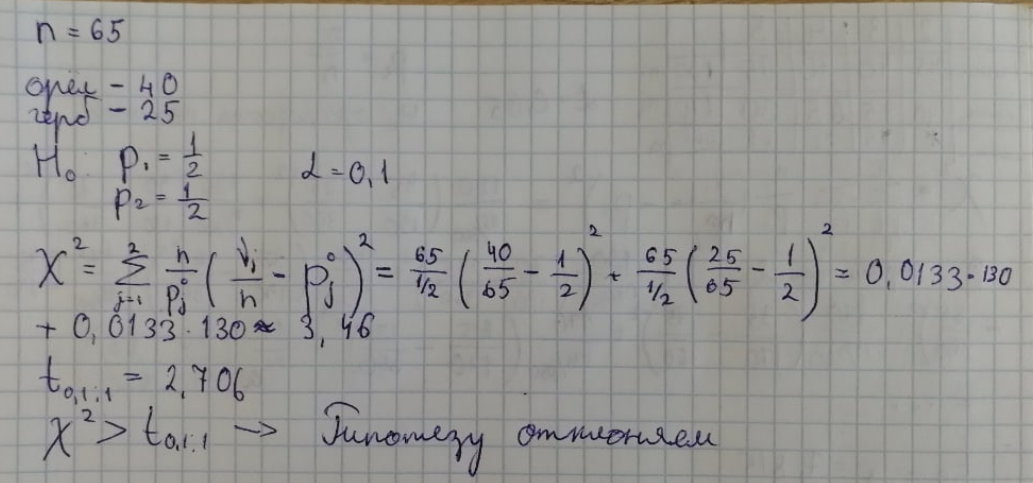 n = 65
орёл - 40
герб - 25
H₀: p₁ = 1/2 α = 0,1
p₂ = 1/2
χ² = Σ_{j=1}^{2} n/p_j° (ν_j/n - p_j°)² = 65/1/2 (40/65 - 1/2)² + 65/1/2 (25/65 - 1/2)² = 0,0133·130
+ 0,0133·130 ≈ 3,46
t₀,₁;₁ = 2,706
χ² > t₀,₁;₁ → Гипотезу отклоняем